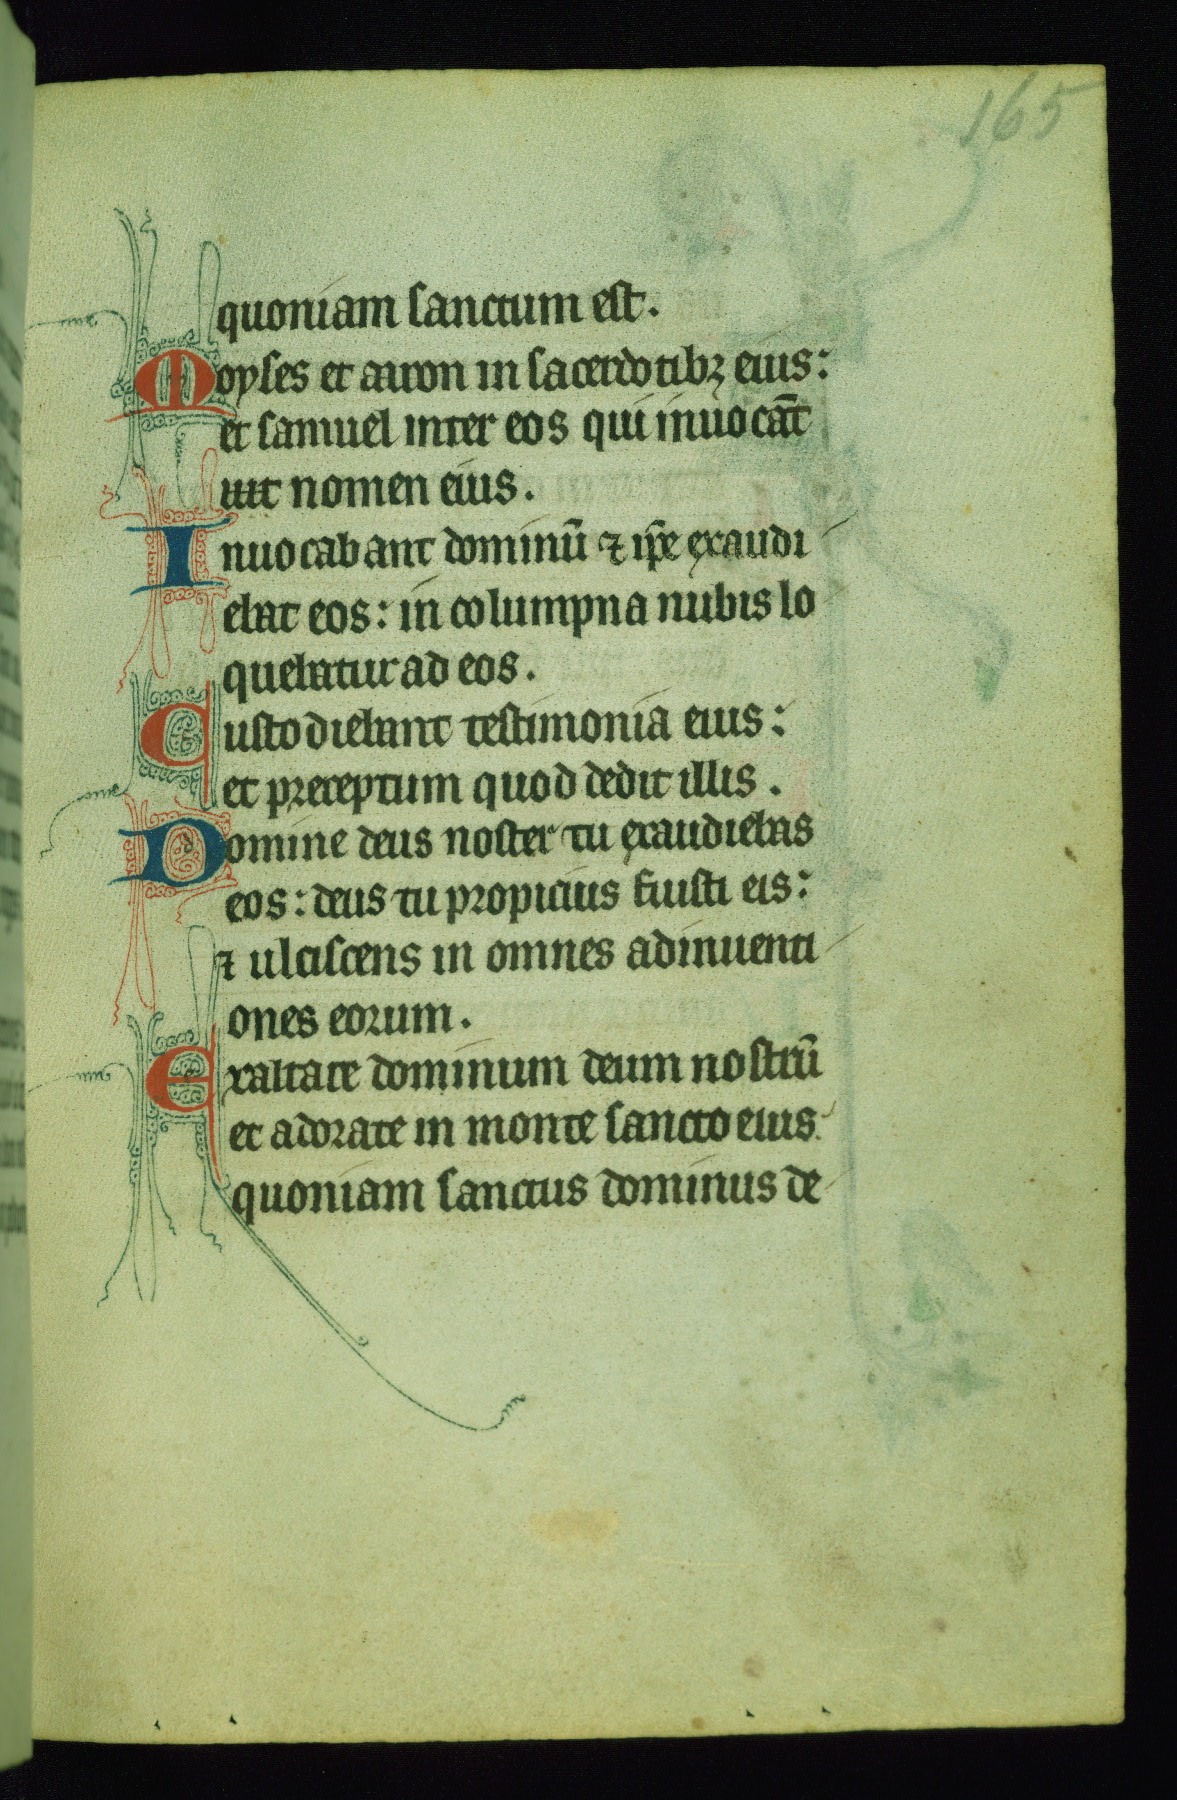 165
quoniam sanctum est.
Moyses et aaron in sacerdotibꝫ eius:
et samuel inter eos qui inuocāt
uit nomen eius.
Inuocabant dominū ⁊ ip̄e exaudi
ebat eos: in columpna nubis lo
quebatur ad eos.
Custodiebant testimonia eius:
et preceptum quod dedit illis.
Domine deus noster tu exaudiebas
eos: deus tu propicius fuisti eis:
⁊ ulciscens in omnes adinuenti
ones eorum.
Exaltate dominum deum nostrū
et adorate in monte sancto eius
quoniam sanctus dominus de